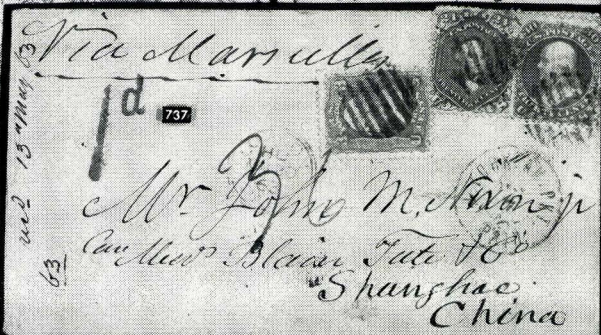 Via Marseilles
1d
737
Mr. John M. Nixon jr
Care Messrs Blain Tate & Co
Shanghae
China
recd 13th May 63
63